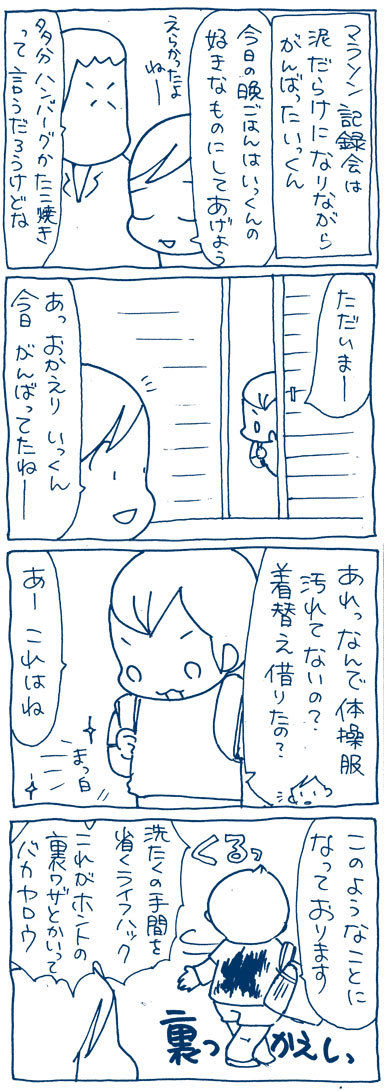 マラソン記録会は
泥だらけになりながら
がんばったいっくん
今日の晩ごはんはいっくんの
好きなものにしてあげよう
えらかったよ
ねー
多分ハンバーグかたこ焼き
って言うだろうけどね
ただいまー
あっおかえりいっくん
今日がんばってたねー
あれっなんで体操服
汚れてないの?
着替え借りたの?
あーこれはね
まっ白
このようなことに
なっております
くるっ
裏っかえしっ
洗たくの手間を
省くライフハック
これがホントの
裏ワザとかいって
バカヤロウ